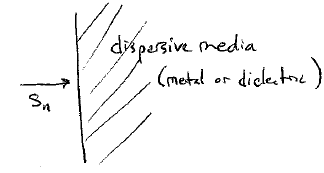 dispersive media
(metal or dielectric)
Sn